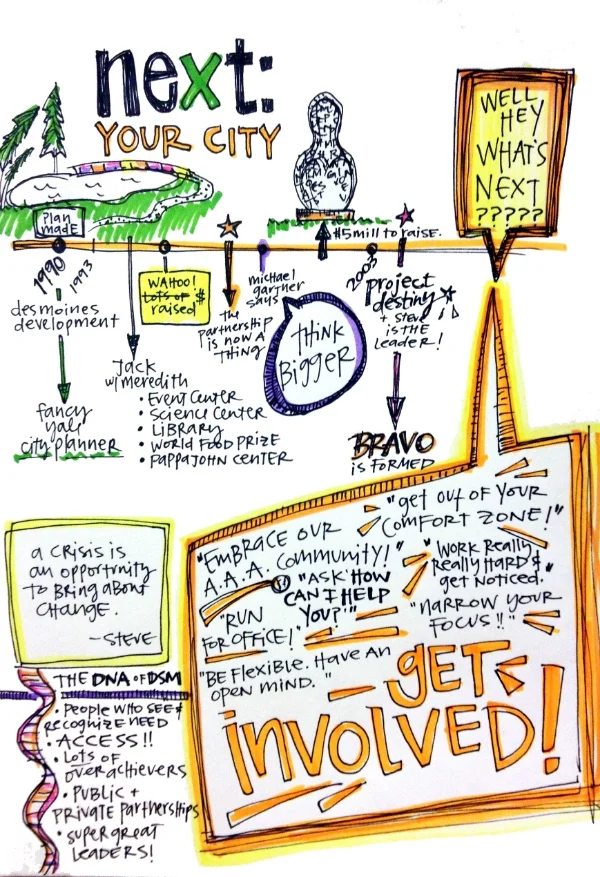 next:
YOUR CITY
Plan
Made
1990
1993
des moines
development
fancy
yale
city planner
Jack
w/meredith
• Event Center
• Science Center
• Library
• World Food Prize
• Pappajohn Center
WAHOO!
Lots of $
raised
the
partnership
is now a
THING
michael
gartner
says
THINK
Bigger
$5mill to raise.
2003
project
destiny
+ Steve
is the
leader!
BRAVO
is formed
WELL
HEY
WHAT'S
NEXT
?????
a crisis is
an opportunity
to bring about
change.
- STEVE
THE DNA of DSM
• People who see +
recognize need
• ACCESS!!
• Lots of
overachievers
• Public +
private partnerships
• super great
leaders!
"Embrace our
A.A.A. community!"
"get out of your
comfort zone!"
"Ask how
can I help
you?"
"Work really
really hard &
get noticed."
"Run
for office!"
"Narrow your
focus!!"
"Be flexible. Have an
open mind."
GET
involved!